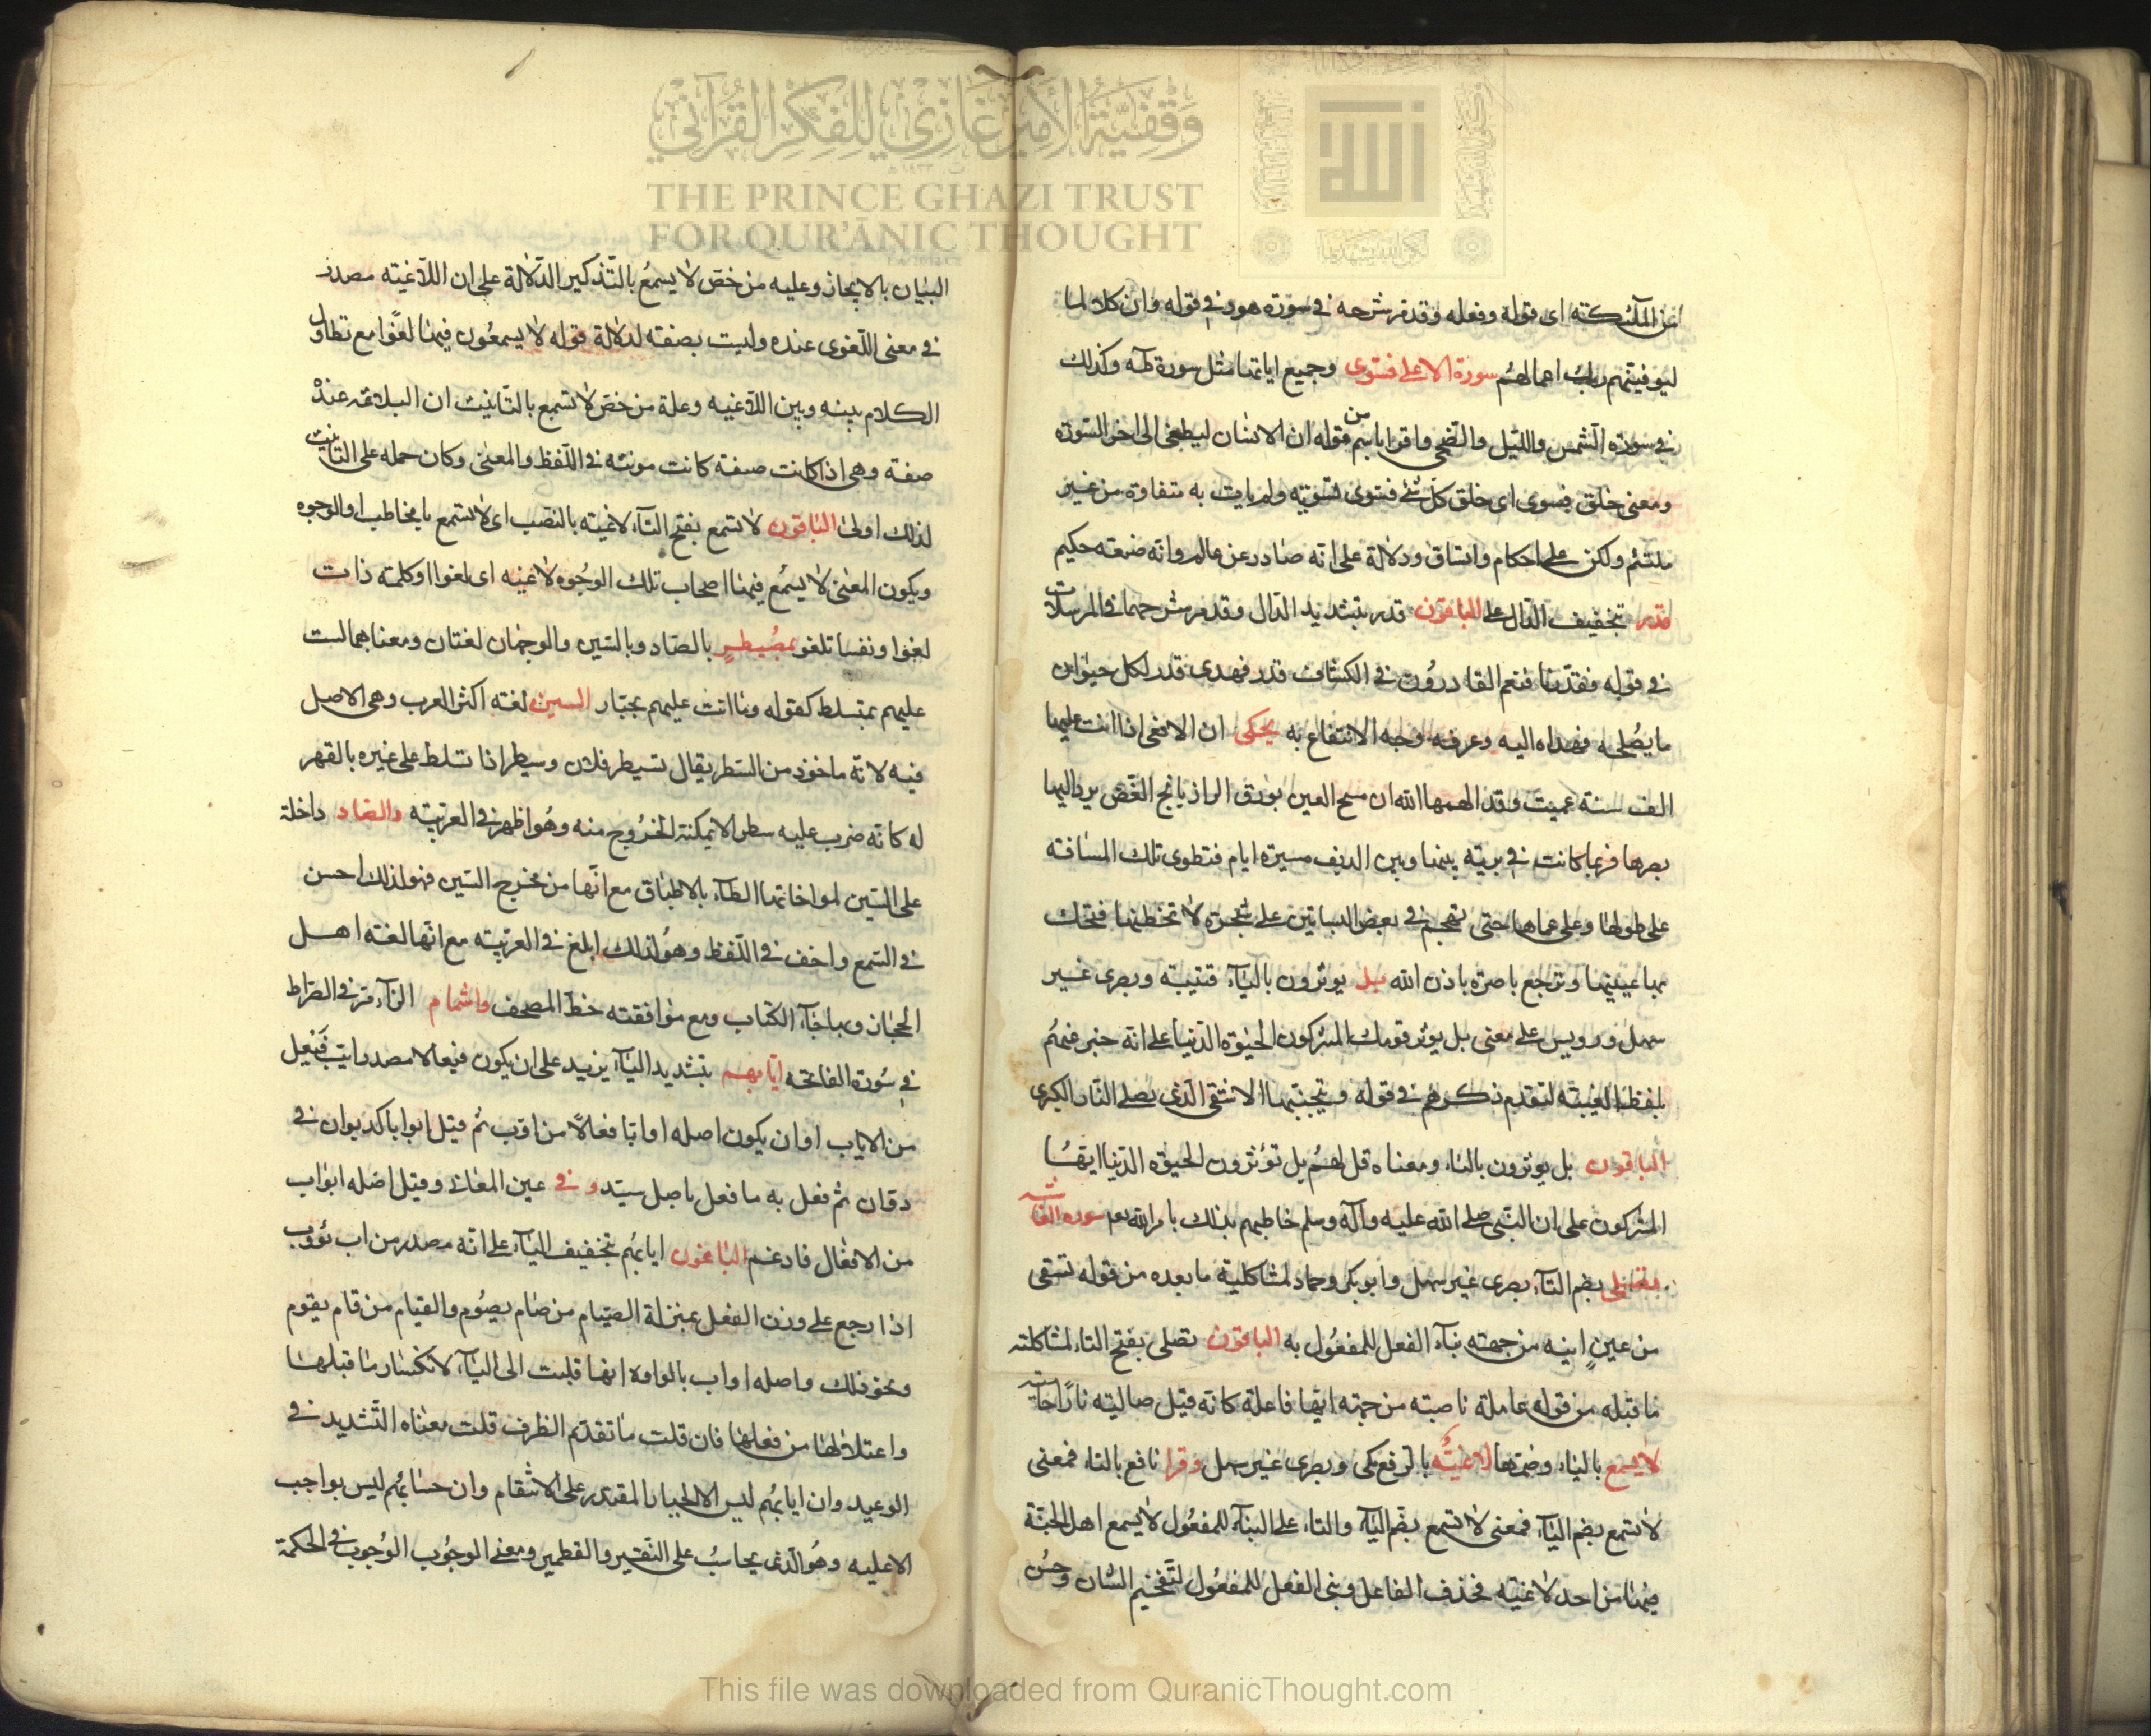 وقفية الأمير غازي للفكر القرآني
THE PRINCE GHAZI TRUST
FOR QUR'ĀNIC THOUGHT
عن الملئكته اى قوله وفعله وقد مر شرحه فى سورة هود فى قوله وان كلا لما
ليوفينهم ربك اعمالهم سورة الاعلى فسوى وجميع اياتها مثل سورة طه وكذلك
فى سورة الشمس والليل والضحى واقرا باسم من قوله ان الانسان ليطغى الى اخر السورة
ومعنى خلق فسوى اى خلق كل شئ فسوى تسويته ولم يات به متفاوتا من غير
ملتئم ولكن على احكام واتساق ودلالة على انه صادر عن عالم وانه صنعه حكيم
قدر بتخفيف الدال على الباقون قدر بتشديد الدال وقد مر شرحهما فى المرسلات
فى قوله فقدرنا فنعم القادرون فى الكشاف قدر فهدى قدر لكل حيوان
ما يصلحه فهداه اليه وعرفه وجه الانتفاع به يحكى ان الافعى اذا اتت عليها
الف سنة عميت وقد الهمها الله ان مسح العين بورق الرازيانج الغض يرد اليها
بصرها فربما كانت فى برية بينها وبين الريف مسيرة ايام فتطوى تلك المسافة
على طولها وعلى عماها حتى تهجم فى بعض البساتين على شجرة لا تخطئها فتحك
بها عينيها وترجع باصرة باذن الله بل يوثرون بالياء قتيبه وبصرى غير
سهل ورويس على معنى بل يوثر قومك المشركون الحيوة الدنيا على انه خبر عنهم
بلفظ الغيبة لتقدم ذكرهم فى قوله ويتجنبها الاشقى الذى يصلى النار الكبرى
الباقون بل يوثرون بالتاء ومعناه قل لهم بل تؤثرون الحيوة الدنيا ايتها
المشركون على ان النبى صلى الله عليه وآله وسلم خاطبهم بذلك بامر الله سورة الغاشية
تصلى بضم التاء بصرى غير سهل وابو بكر وحماد لمشاكلة ما بعده من قوله تسقى
من عين انيه من جهته بناء الفعل للمفعول به الباقون تصلى بفتح التاء لمشاكلته
ما قبله من قوله عاملة ناصبته من جهته انها فاعلة كانه قيل صاليته نارا حامية
لا يسمع بالياء وضمها لاغية بالرفع مكى وبصرى غير سهل وقرا نافع بالتاء فمعنى
لا تسمع بضم الياء فمعنى لا تسمع بضم الياء والتاء على البناء للمفعول لا يسمع اهل الجنة
فيها من احد لاغيته فحذف الفاعل وبنى الفعل للمفعول لتفخيم الشان وحسن
البيان بالايجاز وعليه من خص لا يسمع بالتذكير الدلالة على ان اللاغيته مصدر
فى معنى اللغوى عنده وليست بصفته لدلالة قوله لا يسمعون فيها لغوا مع تطاول
الكلام بينه وبين اللاغيه وعلة من خص لا تسمع بالتانيث ان البلاغه عنده
صفة وهى اذا كانت صفة كانت مونثه فى اللفظ والمعنى وكان حمله على التانيث
لذلك اولى الباقون لا تسمع بفتح التاء لاغيته بالنصب اى لا تسمع يا مخاطب او الوجوه
ويكون المعنى لا يسمع فيها اصحاب تلك الوجوه لاغيه اى لغوا او كلمته ذات
لغوا ونفسا تلغو بمصيطر بالصاد وبالسين والوجهان لغتان ومعناهما لست
عليهم بمتسلط كقوله وما انت عليهم بجبار السين لغته اكثر العرب وهى الاصل
فيه لانه ماخوذ من السطر يقال تسيطر فلان وسيطر اذا تسلط على غيره بالقهر
له كانه ضرب عليه سطرا لا يمكنه الخروج منه وهو اظهر فى العربيته والصاد داخلة
على السين لمواخاتها الطاء بالاطباق مع انها من مخرج السين فهو لذلك احسن
فى السمع واخف فى اللفظ وهو لذلك ابلغ فى العربيته مع انها لغته اهل
الحجاز وبها جاء الكتاب ومع موافقته خط المصحف واشمام الزاء مر فى الصراط
فى سورة الفاتحه ايابهم بتشديد الياء يزيد على ان يكون فيعالا مصدر ايب فيعل
من الاياب او ان يكون اصله اوابا فعالا من اوب ثم قيل ايوابا كديوان فى
دوان ثم فعل به ما فعل باصل سيد و فى عين المعانى وقيل اصله ايواب
من الافعال فادغم الباقون ايابهم بتخفيف الياء على انه مصدر من اب يؤوب
اذا رجع على وزن الفعل بمنزلة الصيام من صام يصوم والقيام من قام يقوم
ونحو ذلك واصله اواب بالواو انها قلبت الى الياء لانكسار ما قبلها
واعتلالها من فعلها فان قلت ما تقدم الظرف قلت معناه التشديد فى
الوعيد وان ايابهم ليس الا الى الجبار المقتدر على الانتقام وان حسابهم ليس بواجب
الا عليه وهو الذى يحاسب على النقير والقطمير ومعنى الوجوب الوجوب فى الحكمة
This file was downloaded from QuranicThought.com